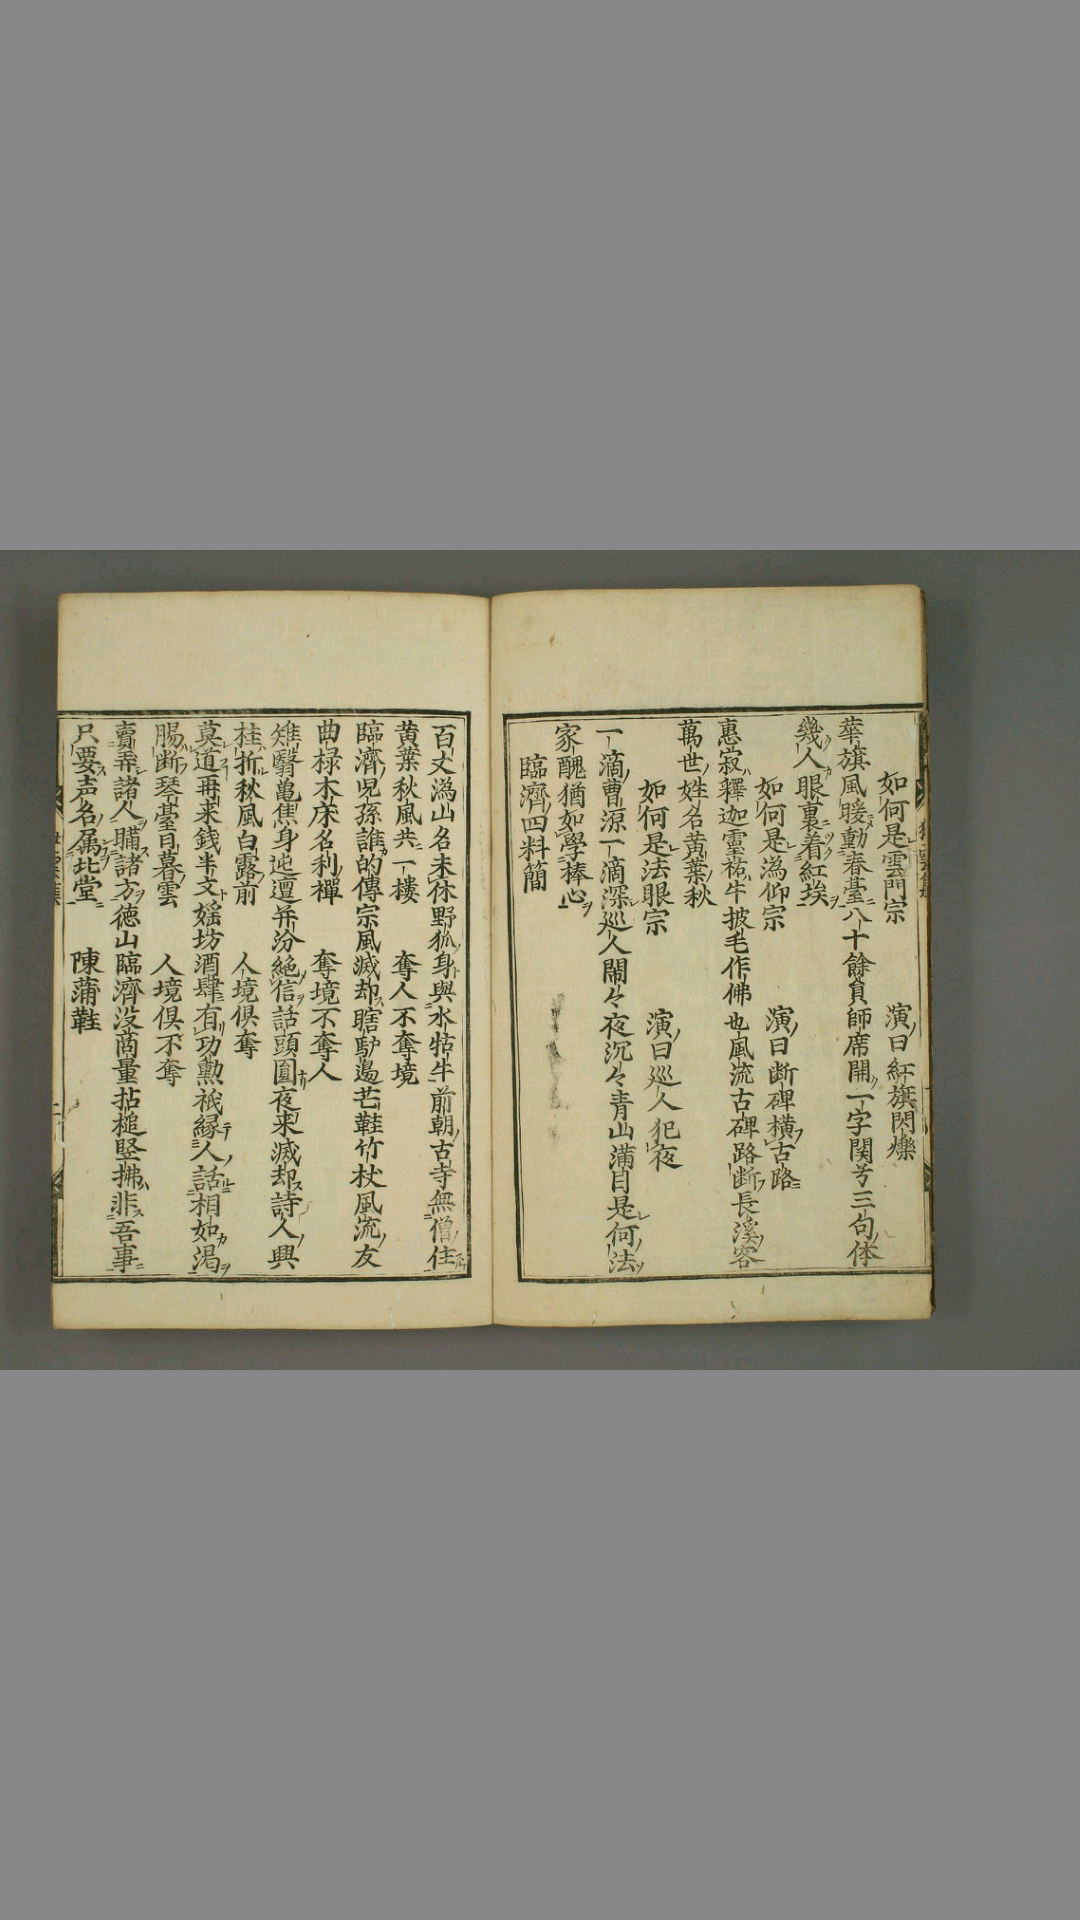 如何是雲門宗　演曰紅旗閃爍
華旗風暖動春臺八十餘員師席開一字関兮三句体
幾人眼裏着紅埃
如何是潙仰宗　演曰断碑横古路
惠寂釋迦靈祐牛披毛作佛也風流古碑路断長溪客
萬世姓名黄葉秋
如何是法眼宗　演曰巡人犯夜
一滴曹源一滴深巡人閙々夜沉々青山滿目是何法
家醜猶如學捧心
臨濟四料簡
百丈潙山名未休野狐身與水牯牛前朝古寺無僧住
黄葉秋風共一樓　奪人不奪境
臨濟児孫誰的傳宗風滅却瞎驢邉芒鞋竹杖風流友
曲椂木床名利禪　奪境不奪人
雉翳亀焦身迍邅并汾絶信話頭圓夜来滅却詩人興
桂折秋風白露前　人境倶奪
莫道再来錢半文婬坊酒肆有功勲祇縁人話相如渇
腸断琴臺日暮雲　人境倶不奪
賣弄諸人瞞諸方德山臨濟没商量拈槌竪拂非吾事
只要声名属北堂　陳蒲鞋